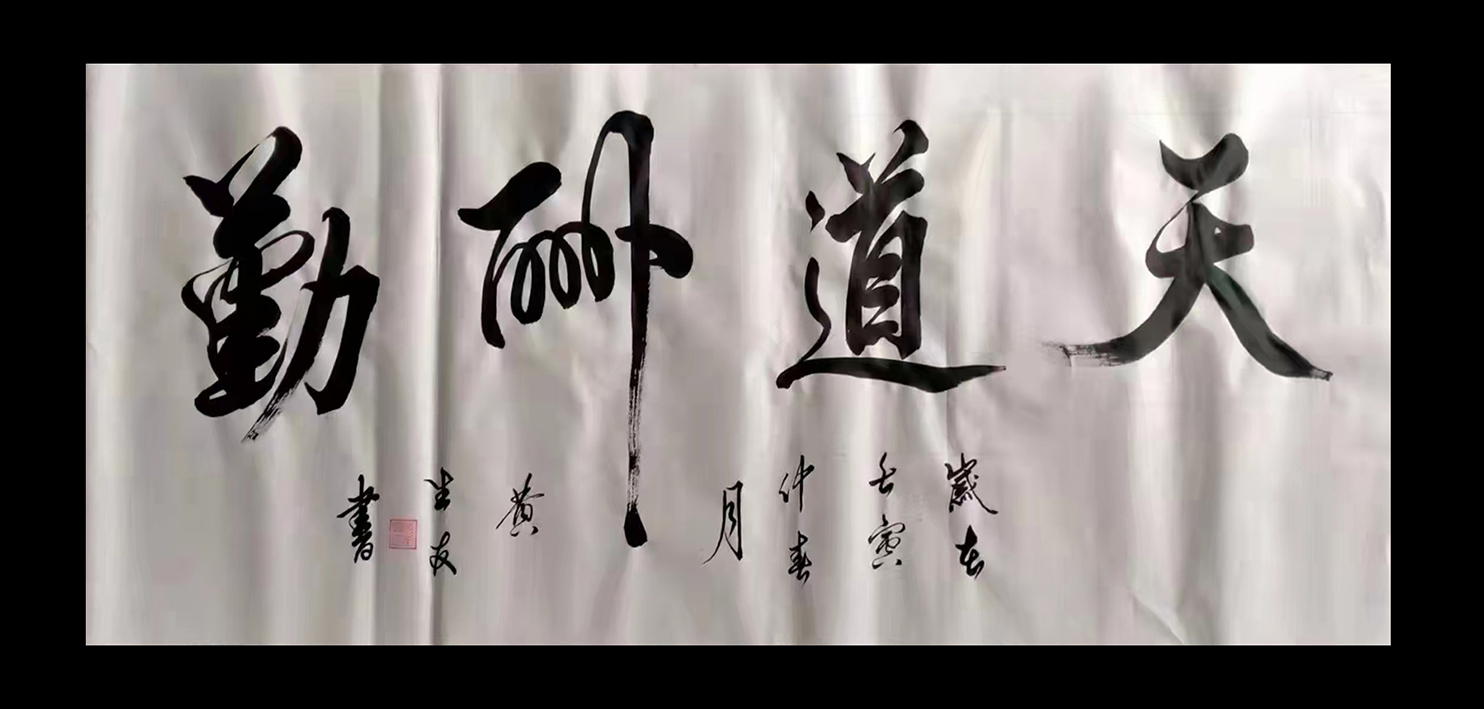 天道酬勤
歲在
壬寅
仲春
月
黄
生友
書